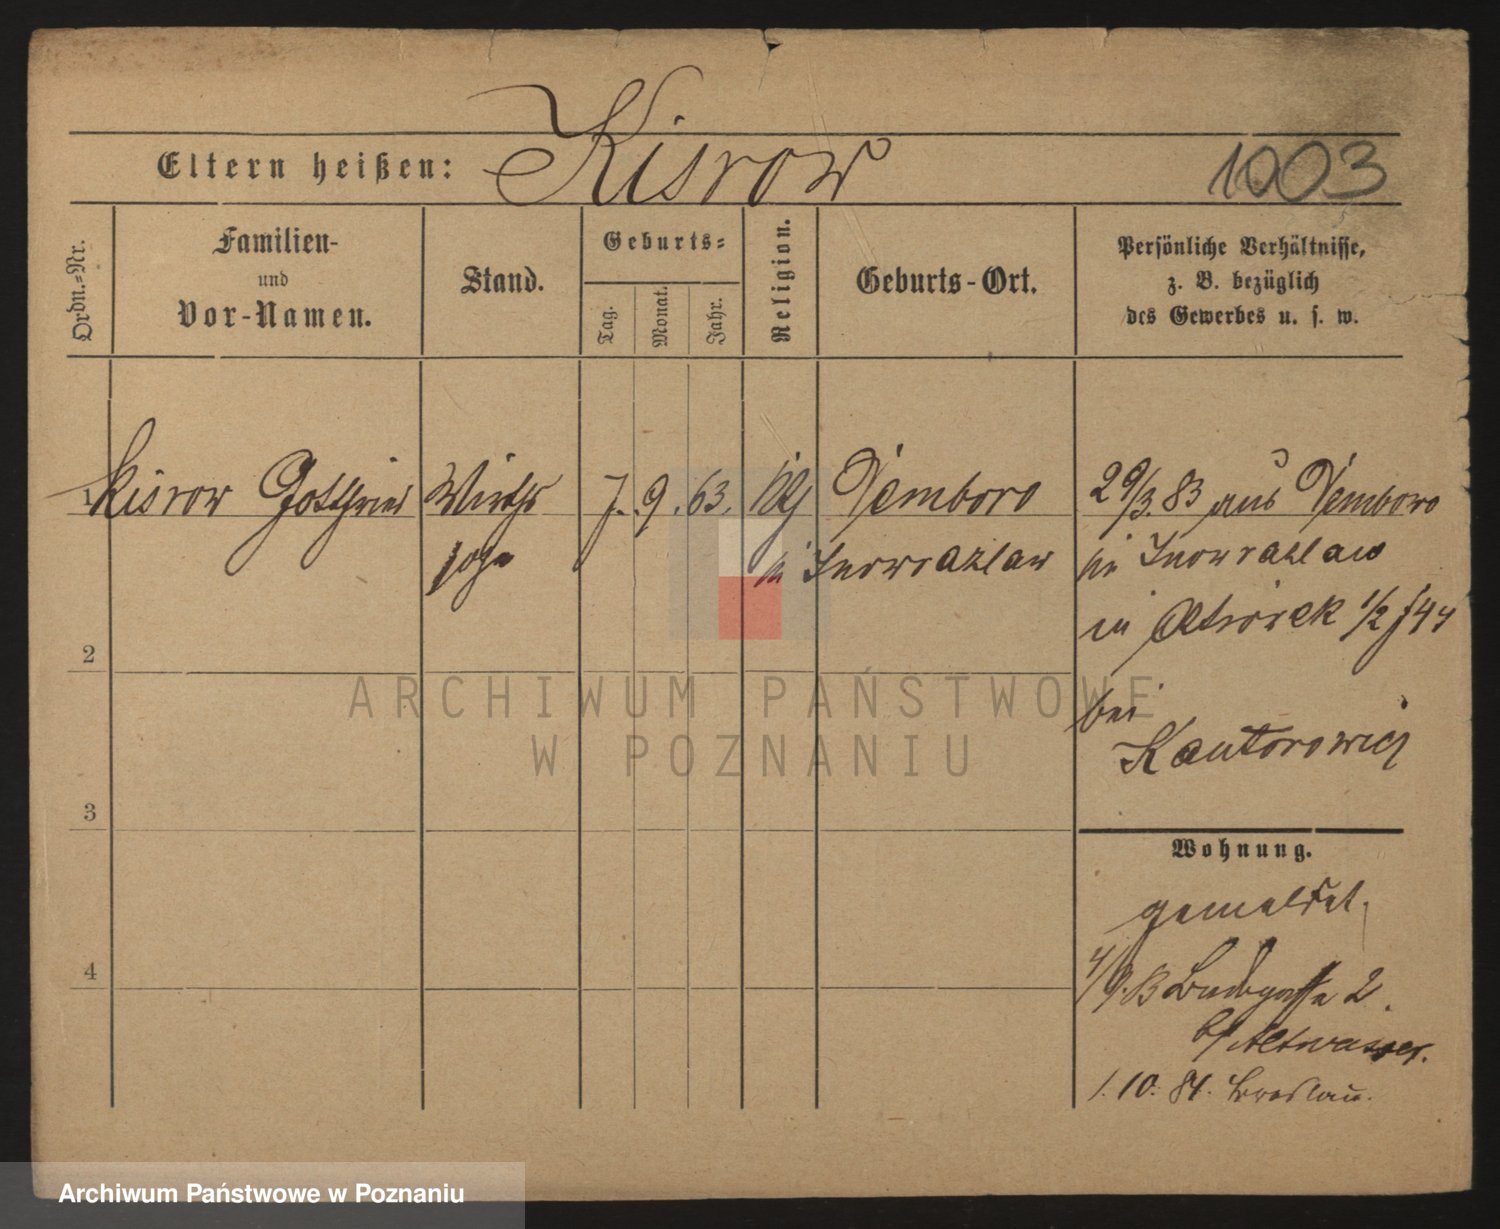 Eltern heißen: Kisrow 1003
Ordn.-Nr.
Familien-
und
Vor-Namen.
Stand.
Geburts-
Tag.
Monat.
Jahr.
Religion.
Geburts-Ort.
Persönliche Verhältnisse,
z. B. bezüglich
des Gewerbes u. s. w.
1 Kisrow Gottfried Wirths 7. 9. 63. Dembowo 29/3. 83 aus Dembowo
sohn in Inowrazlaw in Inowrazlaw
in 1/2
2
bei
Kantorowicz
3
Wohnung.
gemeldet.
4
2
b/ Altwasser.
1. 10. 84. Breslau.
ARCHIWUM PAŃSTWOWE
W POZNANIU
Archiwum Państwowe w Poznaniu